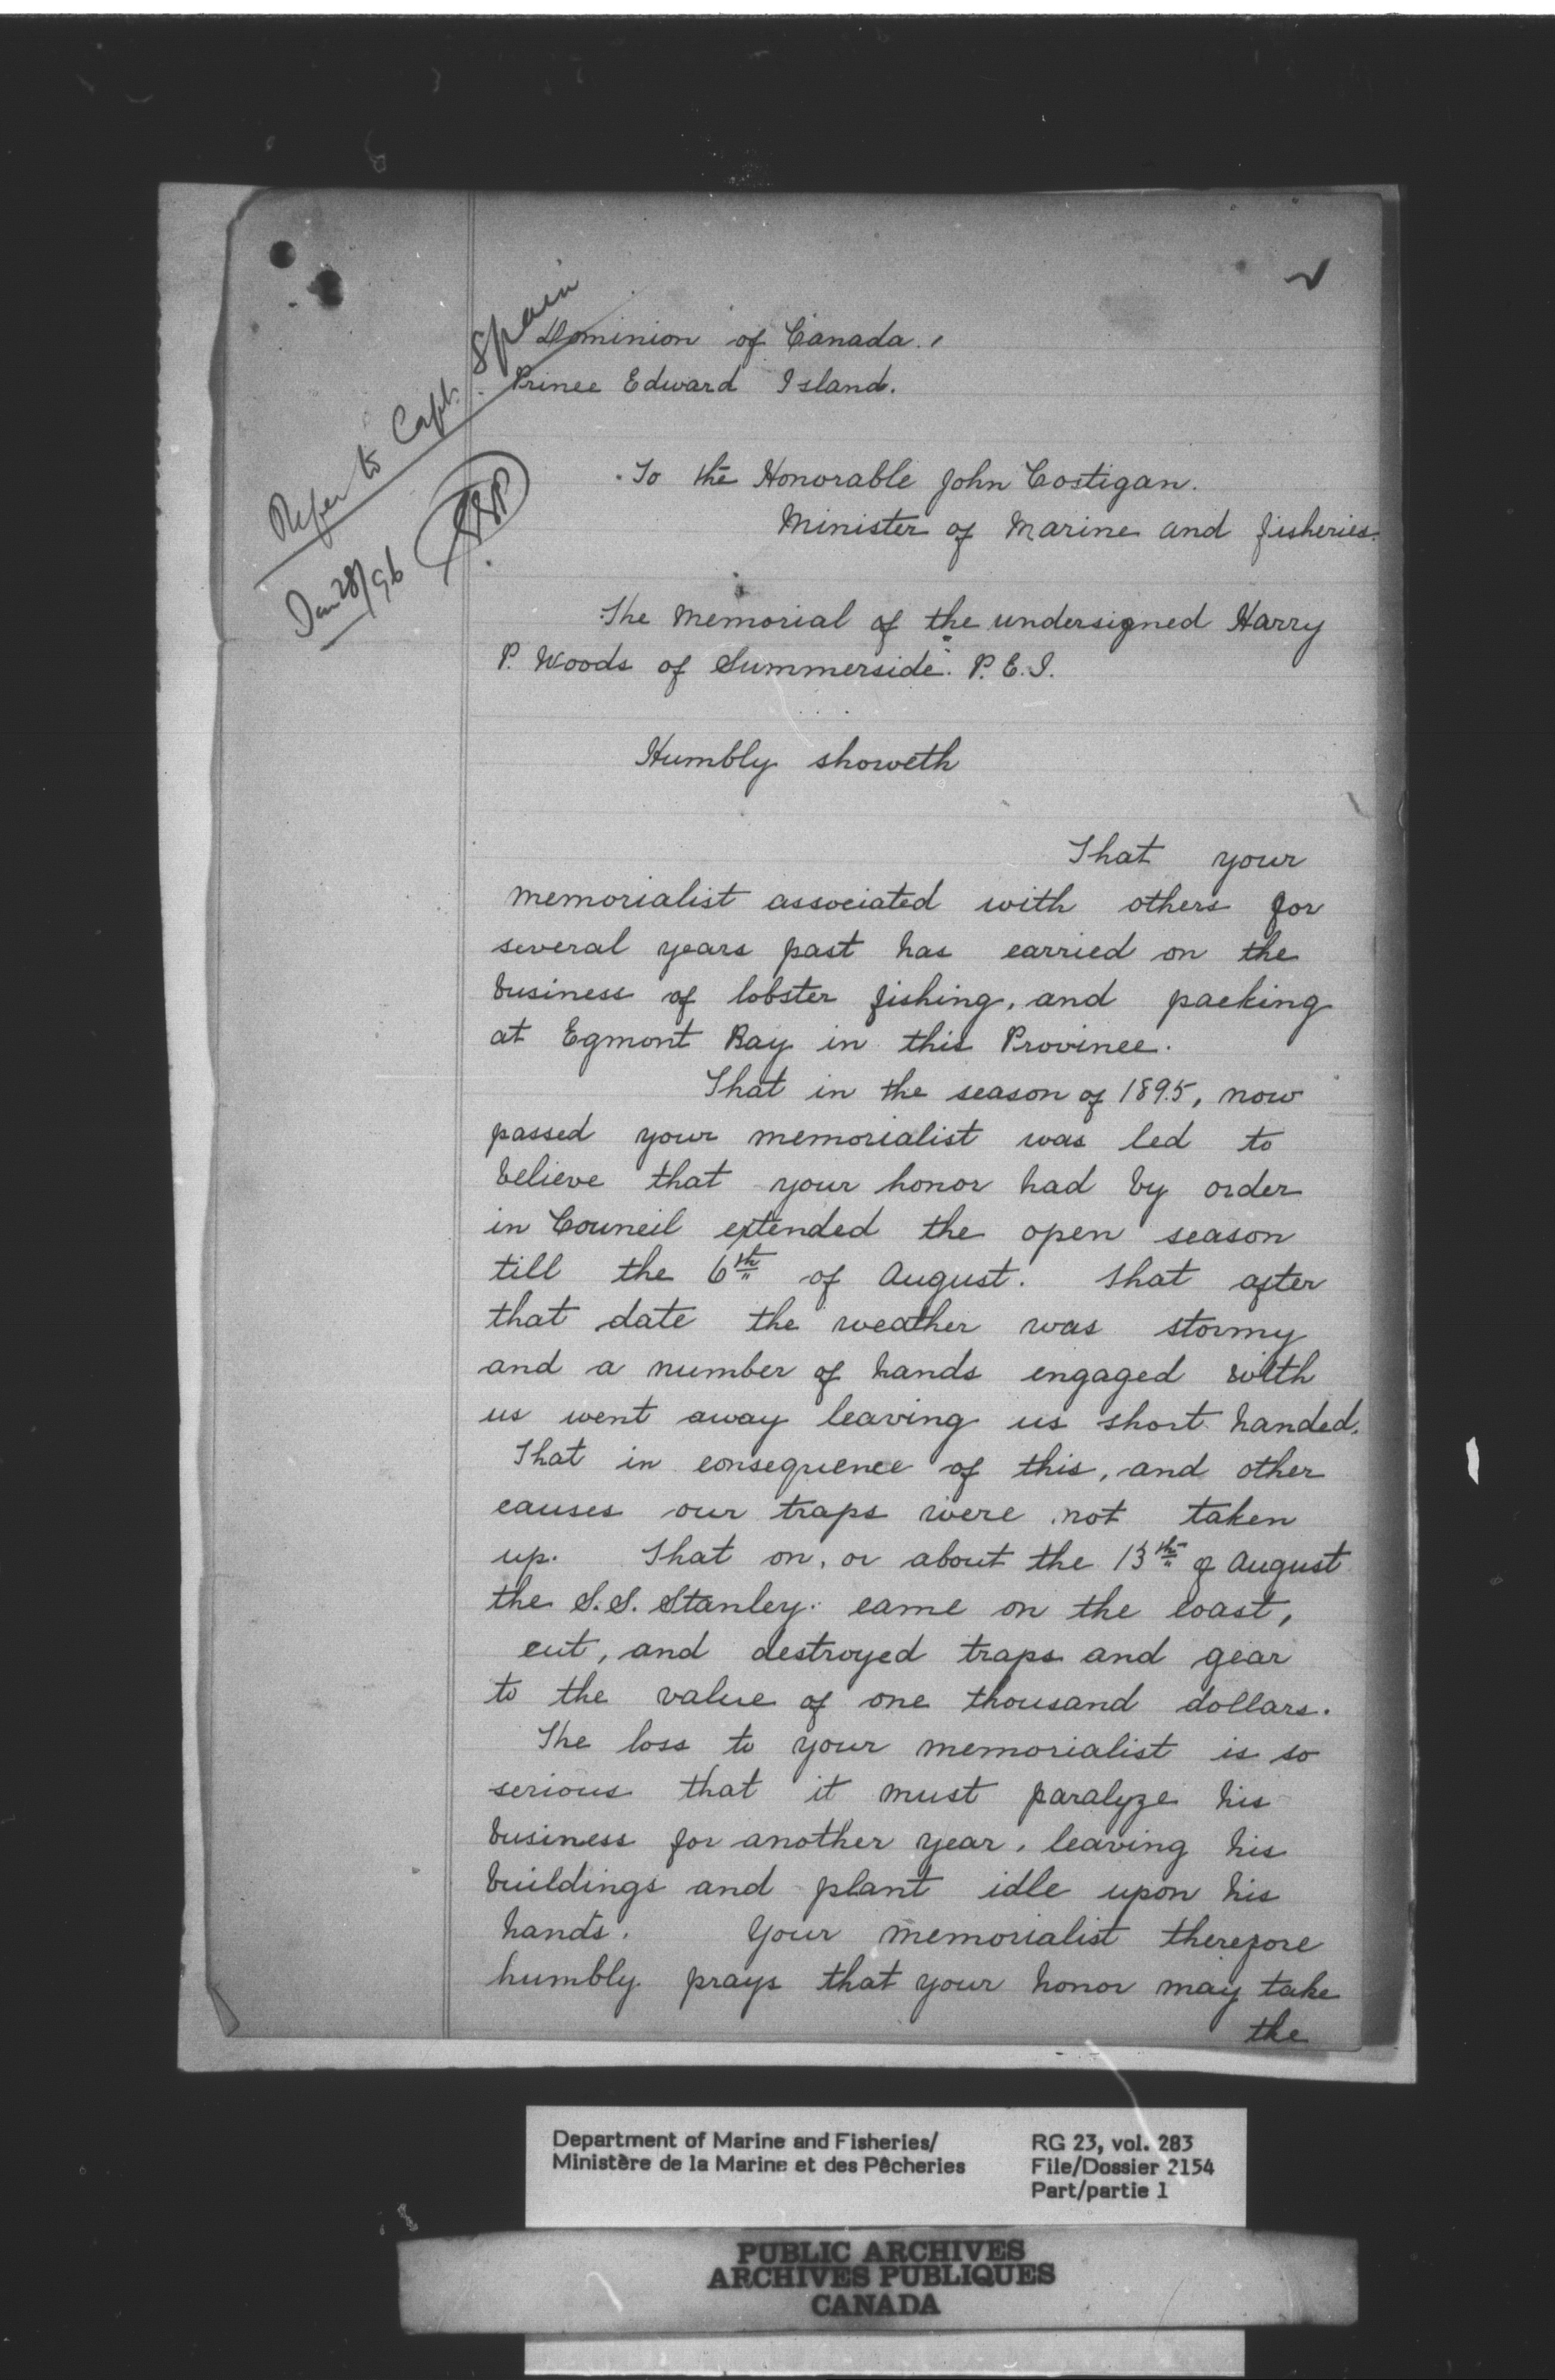 Refer to Capt. Spain
Jan 28/96
Dominion of Canada.
Prince Edward Island.
To the Honorable John Costigan.
Minister of Marine and fisheries.
The Memorial of the undersigned Harry
P. Woods of Summerside. P. E. I.
Humbly showeth
That your
memorialist associated with others for
several years past has carried on the
business of lobster fishing, and packing
at Egmont Bay in this Province.
That in the season of 1895, now
passed your memorialist was led to
believe that your honor had by order
in Council extended the open season
till the 6th of August. That after
that date the weather was stormy
and a number of hands engaged with
us went away leaving us short handed.
That in consequence of this, and other
causes our traps were not taken
up. That on, or about the 13th of August
the S.S. Stanley came on the coast,
cut, and destroyed traps and gear
to the value of one thousand dollars.
The loss to your memorialist is so
serious that it must paralyze his
business for another year, leaving his
buildings and plant idle upon his
hands. Your memorialist therefore
humbly prays that your honor may take
the
Department of Marine and Fisheries/
Ministère de la Marine et des Pêcheries
RG 23, vol. 283
File/Dossier 2154
Part/partie 1
PUBLIC ARCHIVES
ARCHIVES PUBLIQUES
CANADA